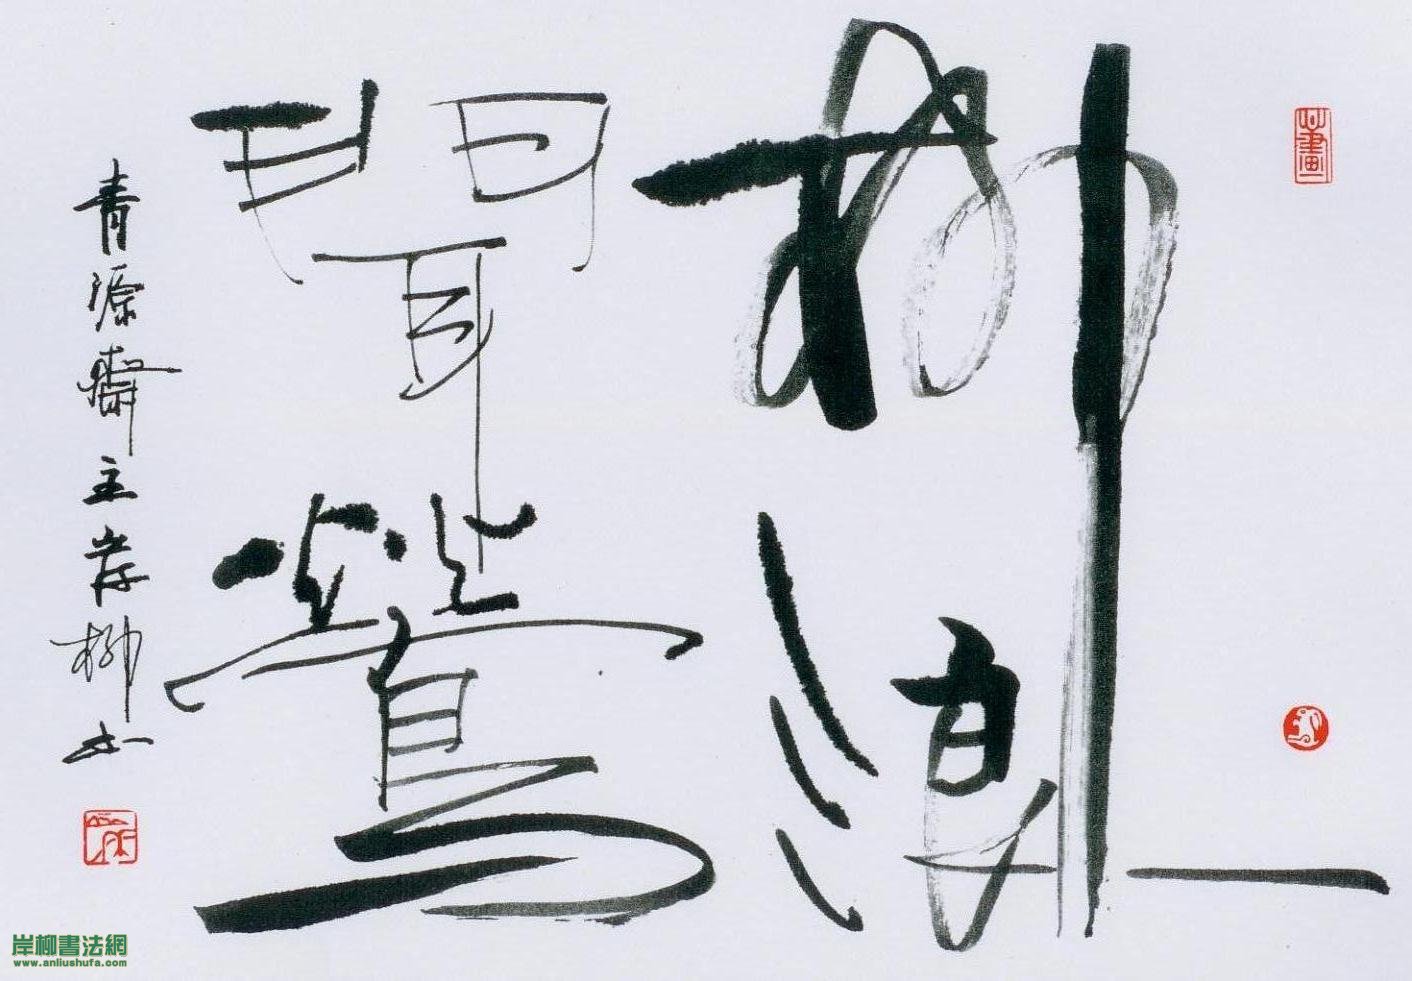 柳浪
聞鶯
青源齋主岸柳书
岸柳書法網
www.anliushufa.com